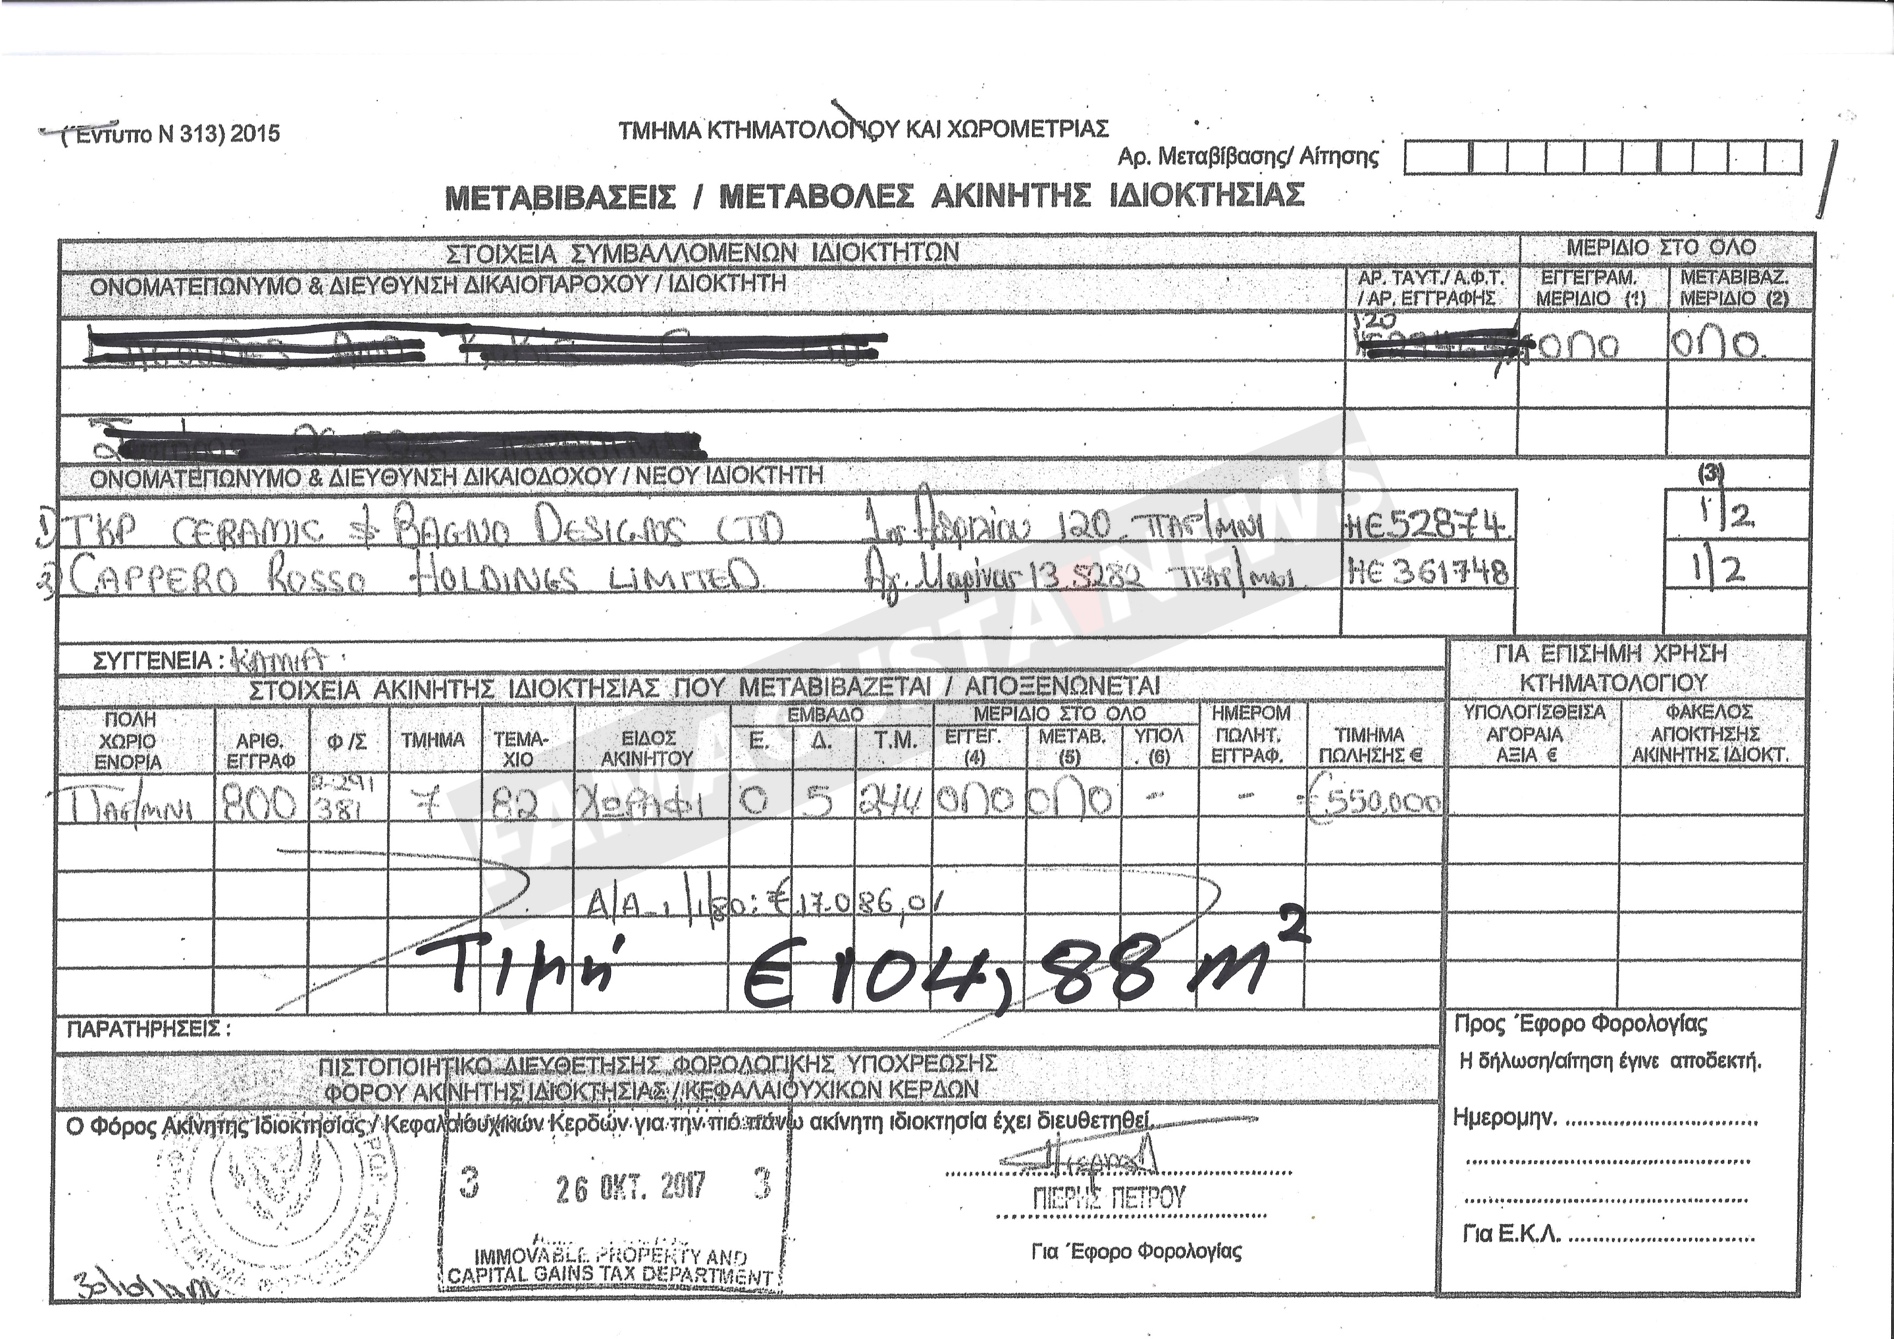 (Έντυπο Ν 313) 2015
ΤΜΗΜΑ ΚΤΗΜΑΤΟΛΟΓΙΟΥ ΚΑΙ ΧΩΡΟΜΕΤΡΙΑΣ
Αρ. Μεταβίβασης/ Αίτησης
ΜΕΤΑΒΙΒΑΣΕΙΣ / ΜΕΤΑΒΟΛΕΣ ΑΚΙΝΗΤΗΣ ΙΔΙΟΚΤΗΣΙΑΣ
ΣΤΟΙΧΕΙΑ ΣΥΜΒΑΛΛΟΜΕΝΩΝ ΙΔΙΟΚΤΗΤΩΝ ΜΕΡΙΔΙΟ ΣΤΟ ΟΛΟ
ΟΝΟΜΑΤΕΠΩΝΥΜΟ & ΔΙΕΥΘΥΝΣΗ ΔΙΚΑΙΟΠΑΡΟΧΟΥ / ΙΔΙΟΚΤΗΤΗ
ΑΡ. ΤΑΥΤ./ Α.Φ.Τ. / ΑΡ. ΕΓΓΡΑΦΗΣ
ΕΓΓΕΓΡΑΜ. ΜΕΡΙΔΙΟ (1)
ΜΕΤΑΒΙΒΑΖ. ΜΕΡΙΔΙΟ (2)
120
ΟΛΟ ΟΛΟ.
ΟΝΟΜΑΤΕΠΩΝΥΜΟ & ΔΙΕΥΘΥΝΣΗ ΔΙΚΑΙΟΔΟΧΟΥ / ΝΕΟΥ ΙΔΙΟΚΤΗΤΗ (3)
1) TKP CERAMIC & BAGNO DESIGNS LTD 1ης Απριλίου 120 ΠΑΡ/ΜΝΙ ΗΕ52874 1/2
2) CAPPERO ROSSO HOLDINGS LIMITED. Αγ. Μαρίνας 13 5282 ΠΑΡ/ΜΝΙ ΗΕ 361748 1/2
ΣΥΓΓΕΝΕΙΑ : ΚΑΜΙΑ
ΓΙΑ ΕΠΙΣΗΜΗ ΧΡΗΣΗ
ΚΤΗΜΑΤΟΛΟΓΙΟΥ
ΣΤΟΙΧΕΙΑ ΑΚΙΝΗΤΗΣ ΙΔΙΟΚΤΗΣΙΑΣ ΠΟΥ ΜΕΤΑΒΙΒΑΖΕΤΑΙ / ΑΠΟΞΕΝΩΝΕΤΑΙ
ΠΟΛΗ ΧΩΡΙΟ ΕΝΟΡΙΑ
ΑΡΙΘ. ΕΓΓΡΑΦ
Φ /Σ
ΤΜΗΜΑ
ΤΕΜΑ-ΧΙΟ
ΕΙΔΟΣ ΑΚΙΝΗΤΟΥ
ΕΜΒΑΔΟ
Ε. Δ. Τ.Μ.
ΜΕΡΙΔΙΟ ΣΤΟ ΟΛΟ
ΕΓΓΕΓ. (4) ΜΕΤΑΒ. (5) ΥΠΟΛ. (6)
ΗΜΕΡΟΜ ΠΩΛΗΤ. ΕΓΓΡΑΦ.
ΤΙΜΗΜΑ ΠΩΛΗΣΗΣ €
ΥΠΟΛΟΓΙΣΘΕΙΣΑ ΑΓΟΡΑΙΑ ΑΞΙΑ €
ΦΑΚΕΛΟΣ ΑΠΟΚΤΗΣΗΣ ΑΚΙΝΗΤΗΣ ΙΔΙΟΚΤ.
ΠΑΡ/ΜΝΙ 800 2-291 381 7 82 ΧΩΡΑΦΙ 0 5 244 ΟΛΟ ΟΛΟ - - €550,000
Α/Α 1/1/80: €17.086,01
Τιμή €104,88 m²
ΠΑΡΑΤΗΡΗΣΕΙΣ :
ΠΙΣΤΟΠΟΙΗΤΙΚΟ ΔΙΕΥΘΕΤΗΣΗΣ ΦΟΡΟΛΟΓΙΚΗΣ ΥΠΟΧΡΕΩΣΗΣ
ΦΟΡΟΥ ΑΚΙΝΗΤΗΣ ΙΔΙΟΚΤΗΣΙΑΣ / ΚΕΦΑΛΑΙΟΥΧΙΚΩΝ ΚΕΡΔΩΝ
Ο Φόρος Ακίνητης Ιδιοκτησίας / Κεφαλαιουχικών Κερδών για την πιό πάνω ακίνητη ιδιοκτησία έχει διευθετηθεί.
3 26 ΟΚΤ. 2017 3
IMMOVABLE PROPERTY AND
CAPITAL GAINS TAX DEPARTMENT
ΠΙΕΡΗΣ ΠΕΤΡΟΥ
Για Έφορο Φορολογίας
Προς Έφορο Φορολογίας
Η δήλωση/αίτηση έγινε αποδεκτή.
Ημερομην. ..............................
Για Ε.Κ.Λ. ..............................
FAMAGUSTA.NEWS